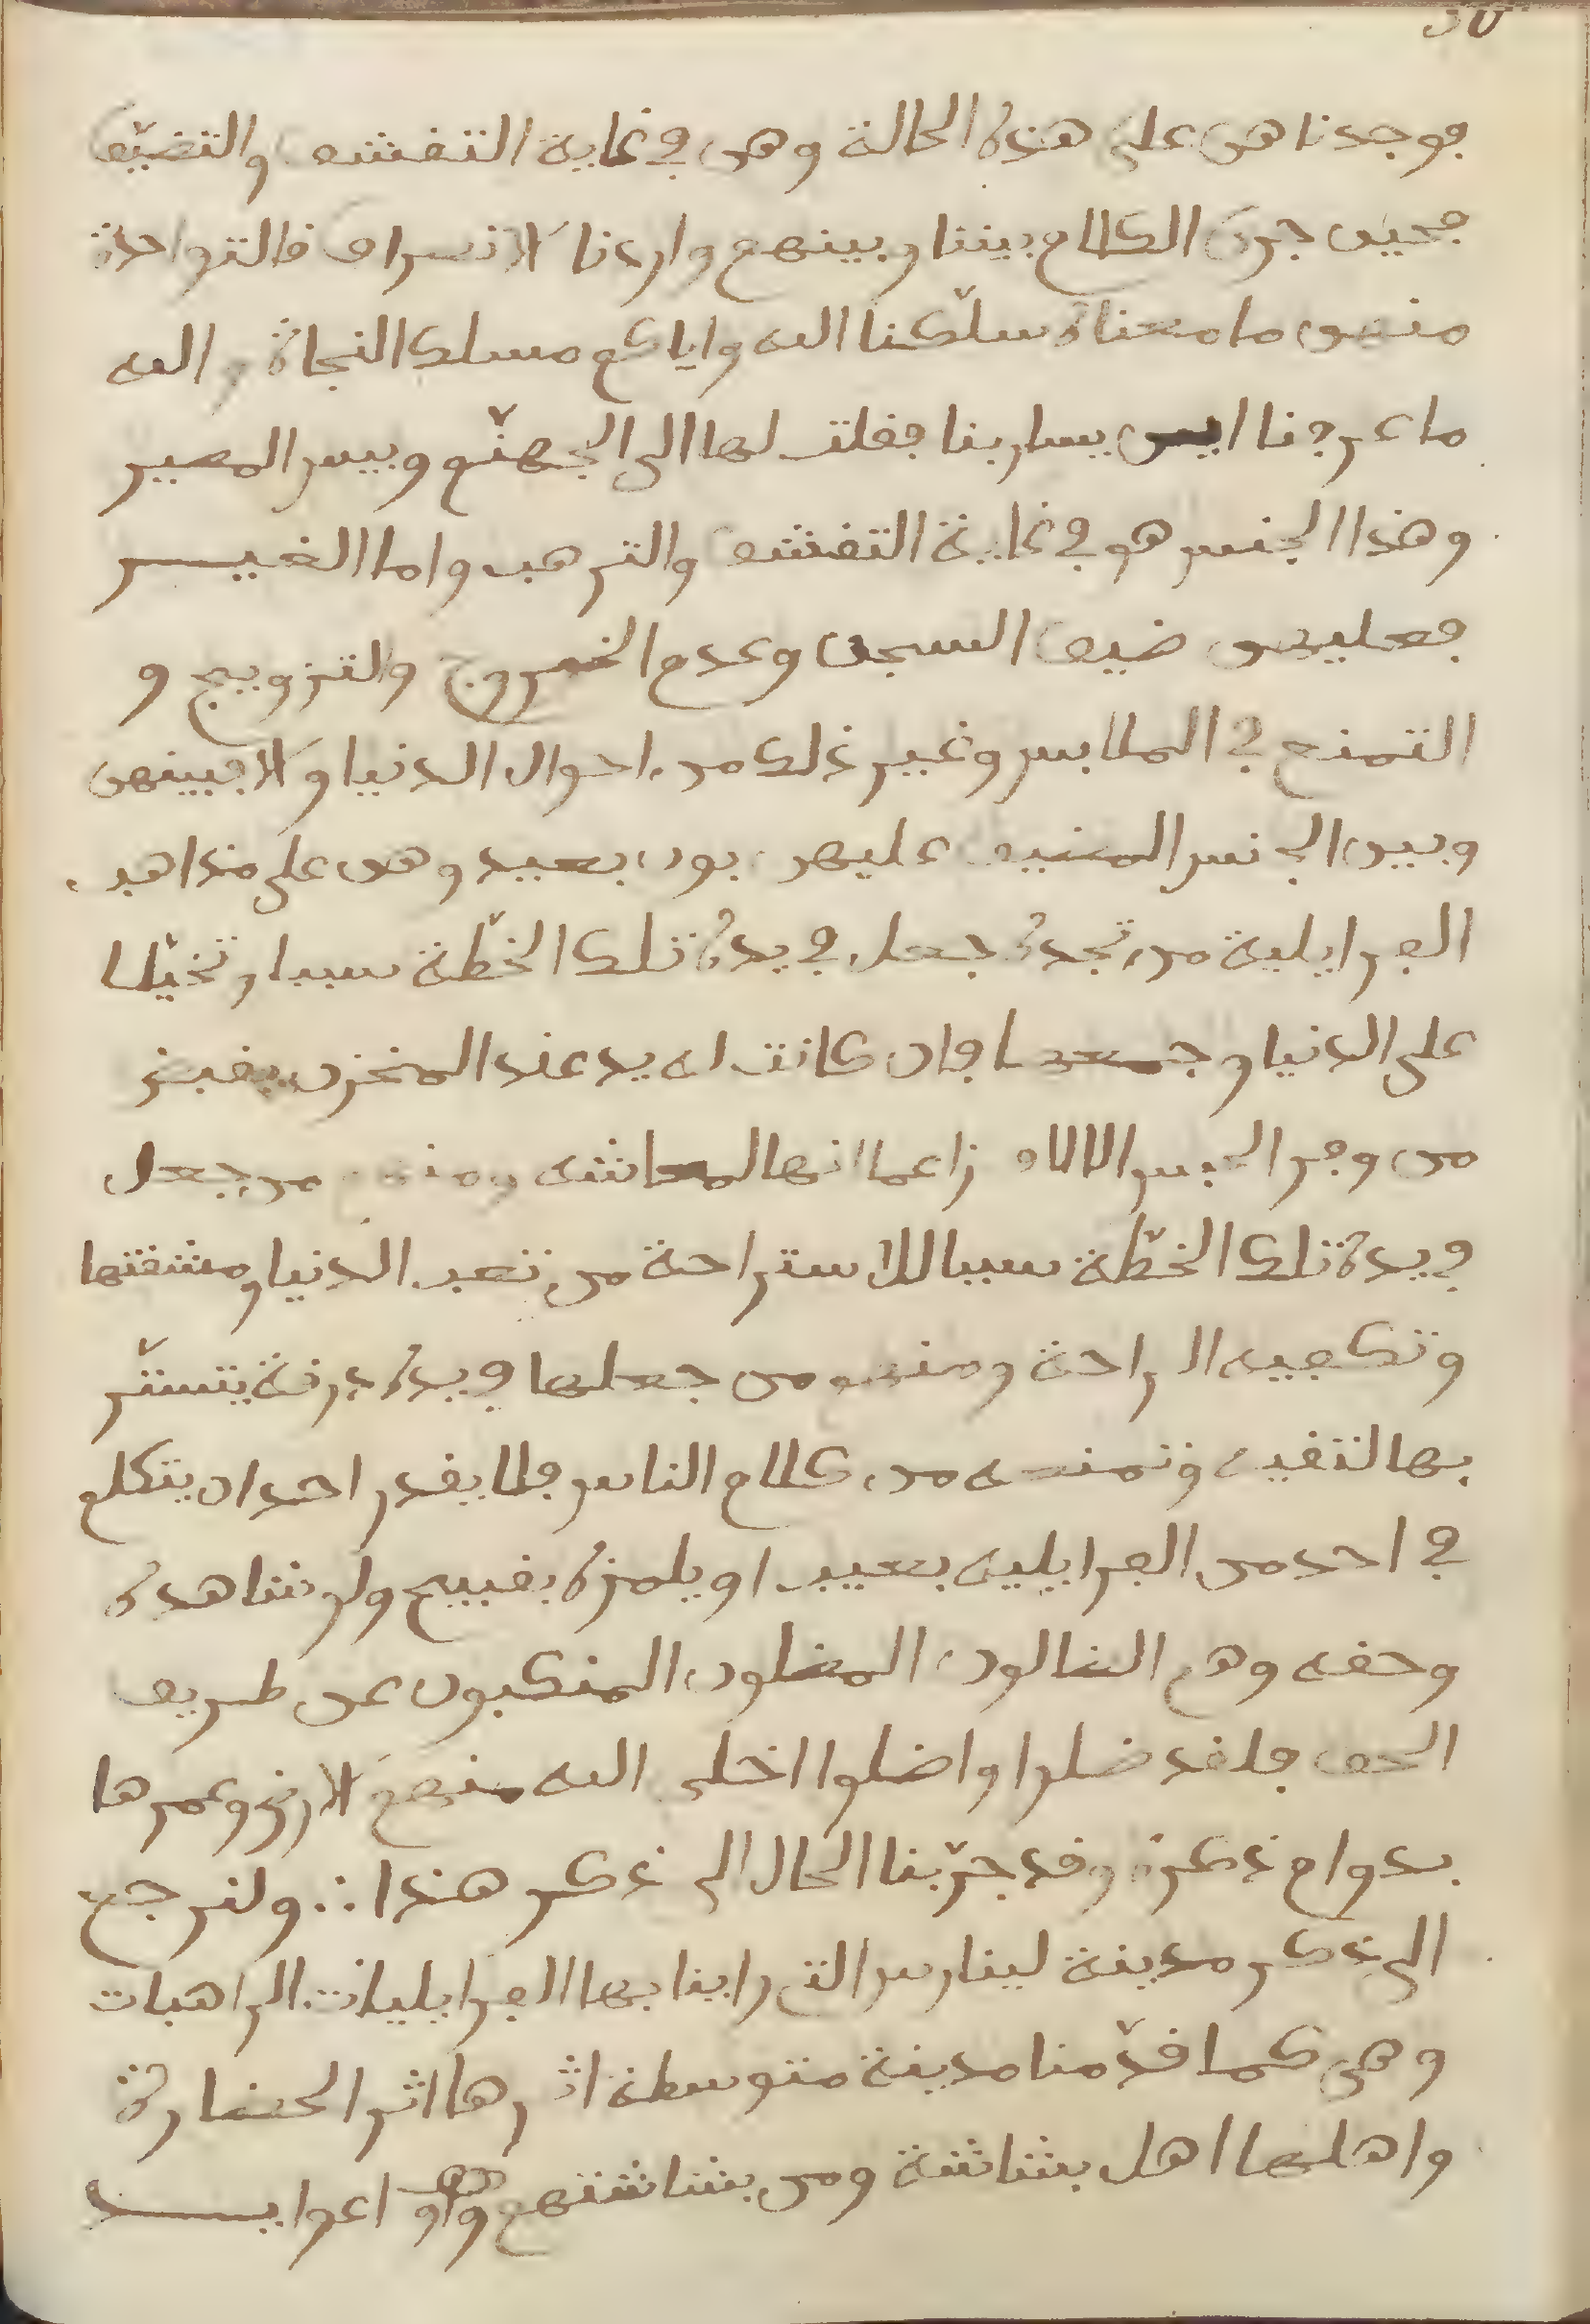 فوجدناهن على هذه الحالة وهن في غاية التقشف والتضيّق
فحين جرى الكلام بيننا وبينهم واردنا الانصراف قالت واحدة
منهن ما معناه سلّكنا الله واياكم مسلك النجاة والله
ما عرفنا اين يسار بنا فقلت لها الى الجهنّم وبيس المصير
وهذا الجنس هو في غاية التقشف والترهب واما الغيـــر
فعليهن ضيق السجن وعدم الخروج والتزويج و
التمتع في الملابس وغير ذلك من احوال الدنيا ولا فبينهن
وبين الجنس المضيق عليهن بون بعيد وهن على مذاهب
الفرايلية من تجده جعل في يده تلك الخطّة سببا وتخيّلا
على الدنيا وجمعها فان كانت له يد عند المخزن يقبز
من وفر الحبس الالاف زاعما انها لمعاشه ومنهم من جعل
في يده تلك الخطّة سببا للاستراحة من تعب الدنيا ومشقتها
وتكفيه الراحة ومنهم من جعلها في يده درقة يتستّر
بها لتقيه وتمنعه من كلام الناس فلا يقدر احد ان يتكلم
في احد من الفرايلية بعيب او يلمزه بقبيح ولو شاهده
وحقه وهم الضالون المضلون المنكبون عن طريق
الحق فلقد ضلوا واضلوا اخلى الله منهم الارض وعمرها
بدوام ذكره وقد جرّبنا الحال الى ذكر هذا ∴ ولنرجع
الى ذكر مدينة لينارس التي راينا بها الفرايليات الراهبات
وهي كما قدّمنا مدينة متوسطة اثرها اثر الحضارة
واهلها اهل بشاشة ومن بشاشتهم اعوايـــد